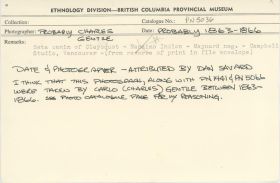 ETHNOLOGY DIVISION—BRITISH COLUMBIA PROVINCIAL MUSEUM
Collection Catalogue No.: PN 5036
Photographer: PROBABLY CHARLES GENTILE Date: PROBABLY 1863-1866
Remarks:
of Clayoquot - Indian - Maynard neg. - Campbell
Studio, Vancouver - (from reverse of print in file envelope)
DATE & PHOTOGRAPHER - ATTRIBUTED BY DAN SAVARD
I THINK THAT THIS PHOTOGRAPH, ALONG WITH PN & PN 5066
WERE TAKEN BY CARLO (CHARLES) GENTILE BETWEEN 1863-
1866. SEE PHOTO CATALOGUE PAGE FOR MY REASONING.